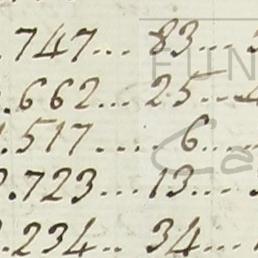 .747... 83...
.662... 25...
.517.... 6....
.723... 13...
.234... 34...